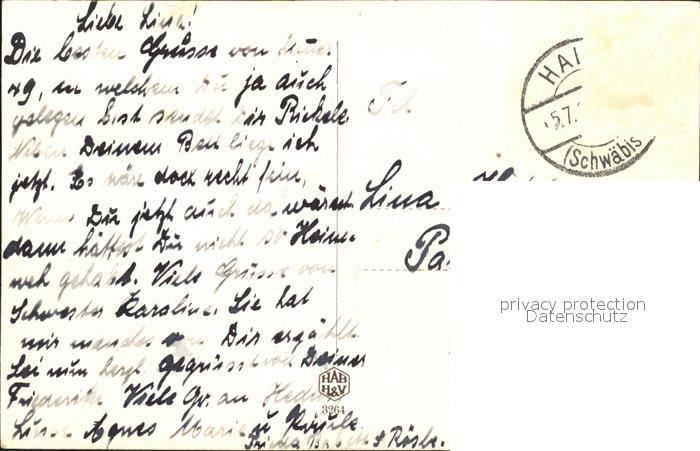 Liebe Lina!
Die besten Grüsse von Zimmer
49, in welchem Du ja auch
gelegen bist sendet Dir Rickele.
Neben Deinem Bett liege ich
jetzt. Es wäre doch recht fein,
wenn Du jetzt auch da wärest
dann hättest Du nicht so Heim-
weh gehabt. Viele Grüsse von
Schwester Karoline. Sie hat
mir manches von Dir erzählt.
Sei nun herzl. gegrüsst von Deiner
Friederike Viele Gr. an
Agnes Marie u
Frieda &  Rösle.
Frl
Lina
HAL
5.7.
(Schwäbis
HAB
H&V
3264
privacy protection
Datenschutz